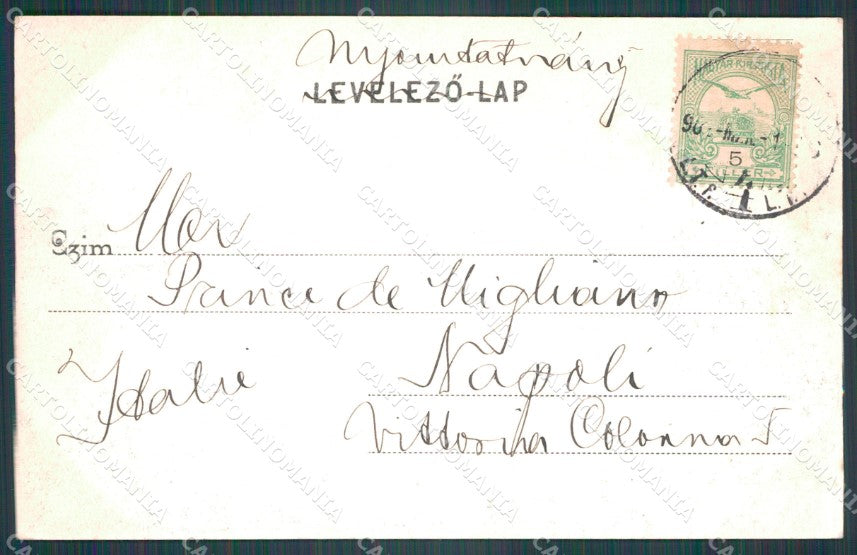 Nyomtatvány
LEVELEZŐ-LAP
MAGYAR KIR. POSTA
5
FILLÉR
Czim Mor
Prince de Migliano
Napoli
Italie
Vittoria Colonna
CARTOLINOMANIA